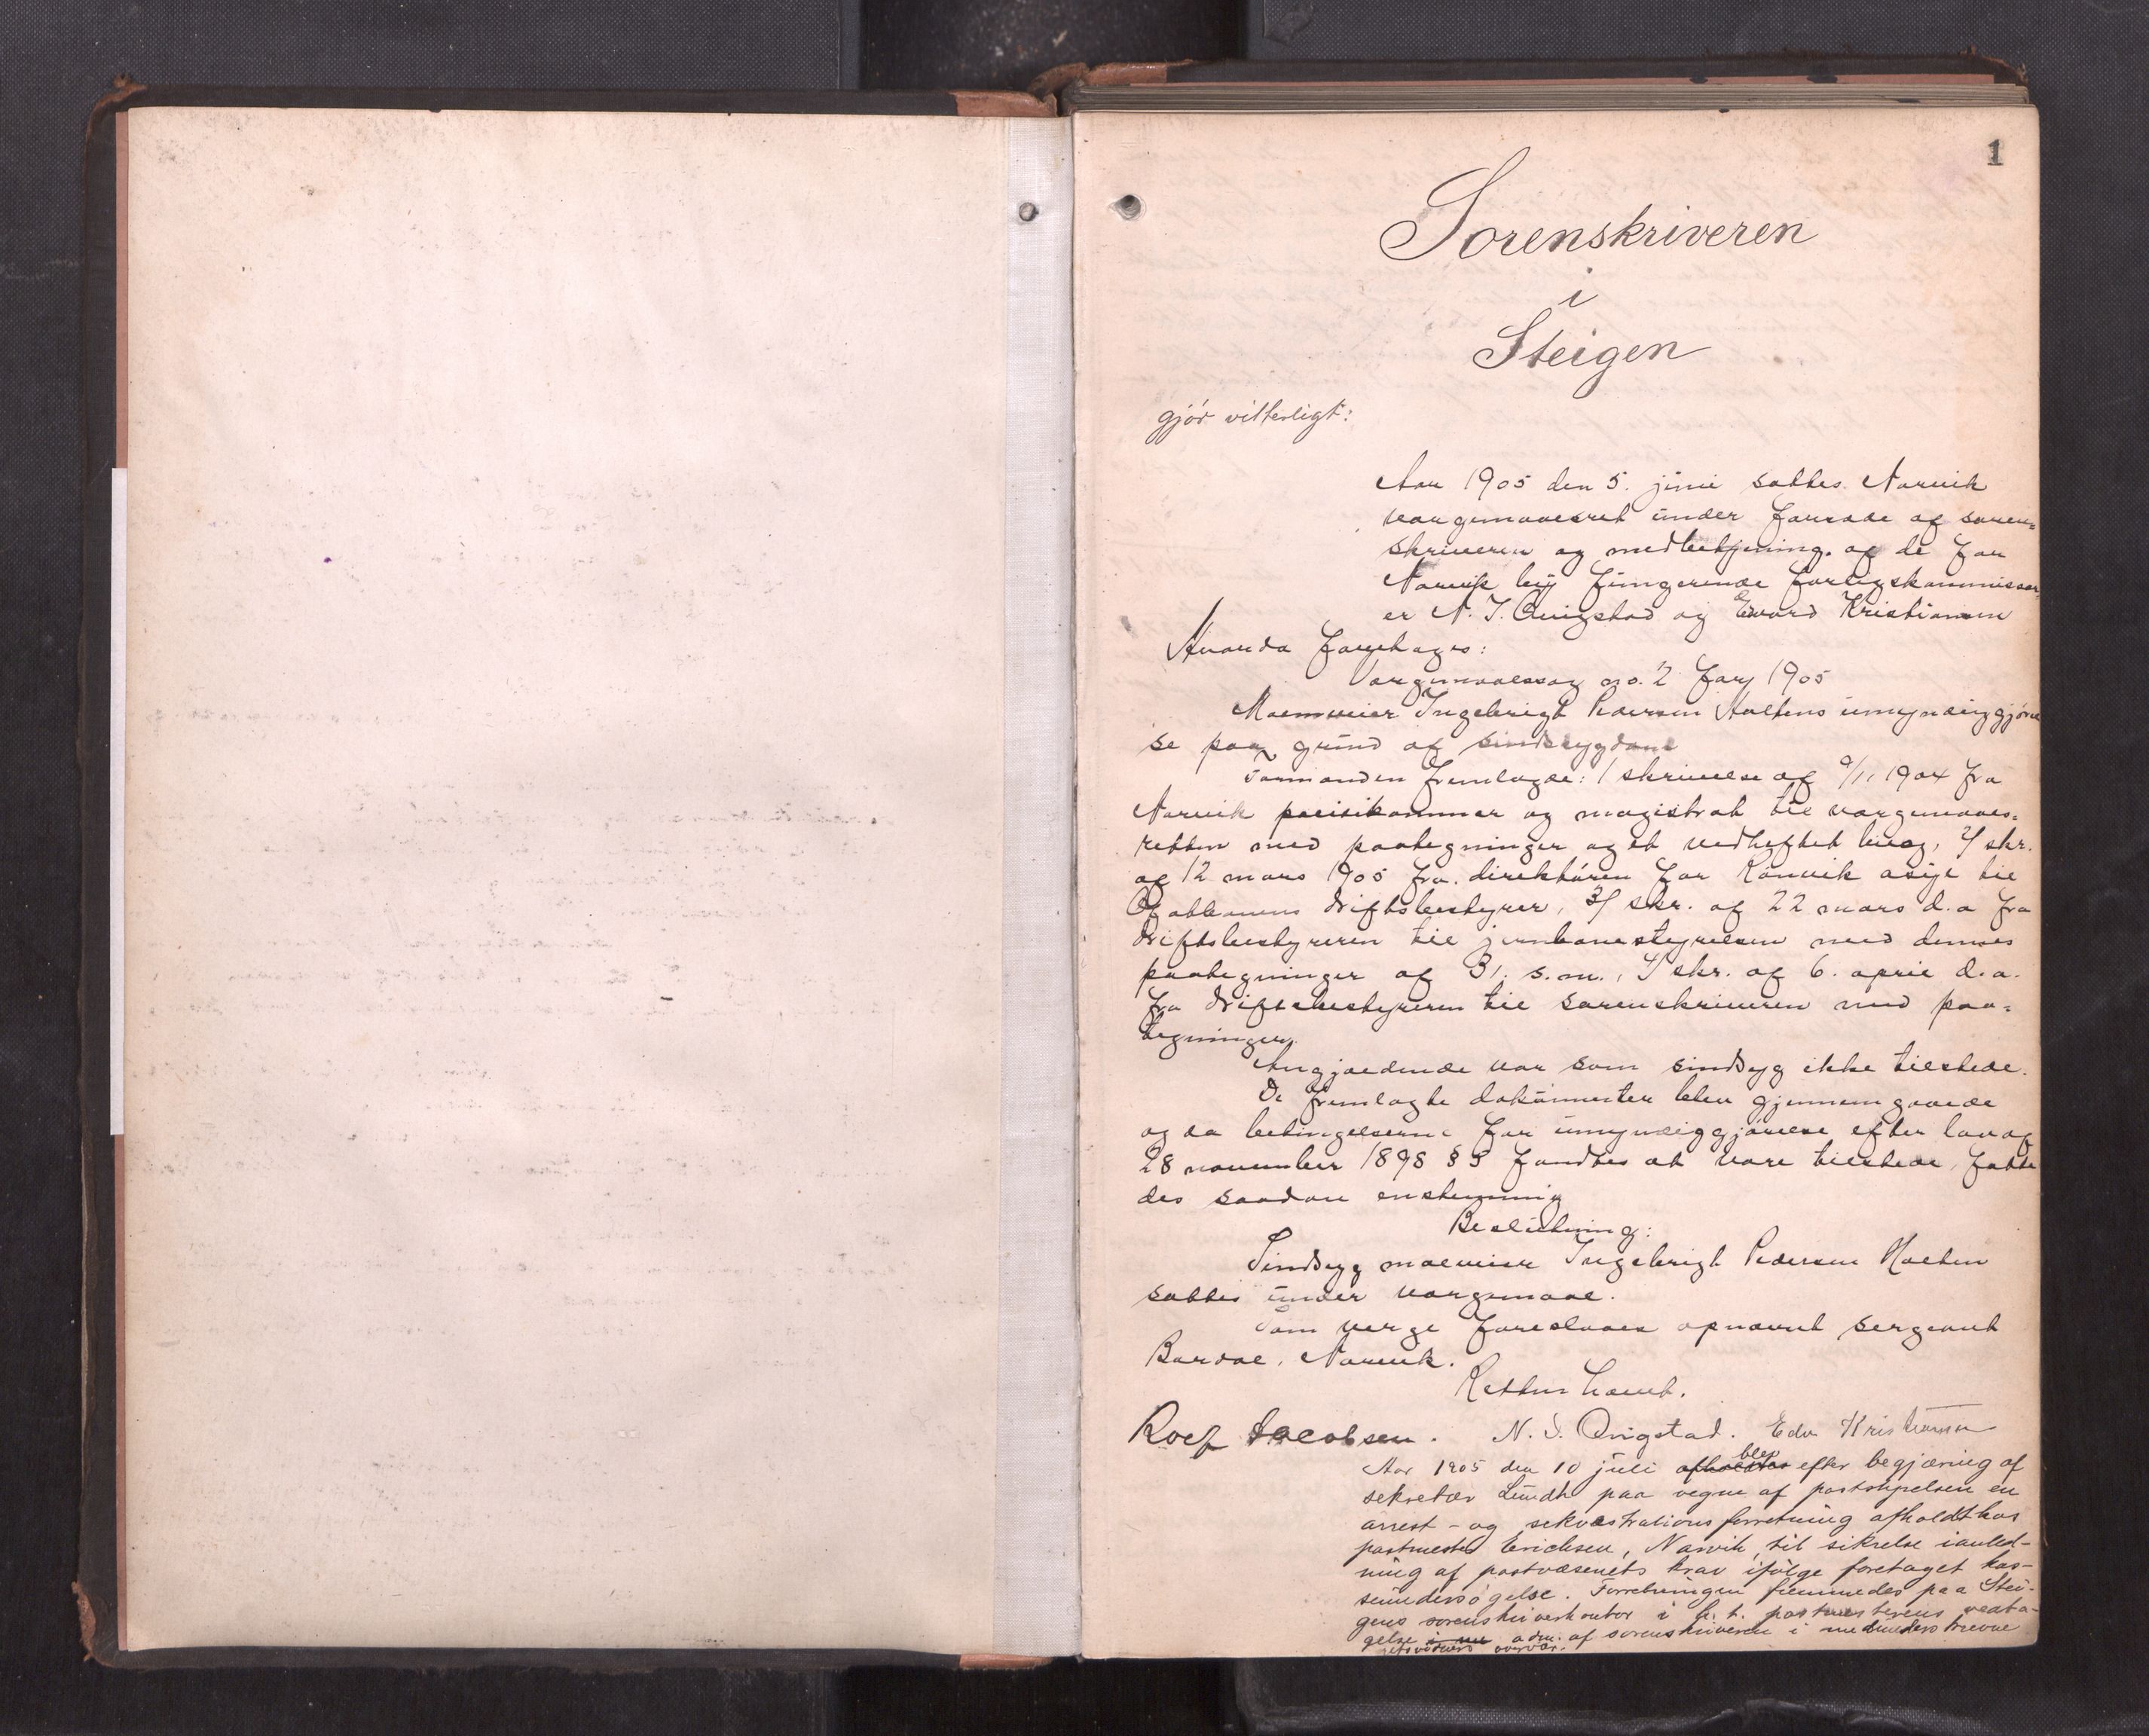 1
Sorenskriveren
i
Steigen
gjør vitterligt:
Aar 1905 den 5. juni sattes Narvik
vergemaalsret under forsæde af soren-
skriveren og medbetjening af de for
Narvik by fungerende forligskommissær-
er N. J. Quigstad og Edvard Kristiansen
Hvorda foretages:
Vergemaalssag no. 2 for 1905
Ingebrigt Pedersen Holtens umyndiggjørel
se paa grund af sindssygdom
Formanden fremlagde: 1 skrivelse af 9/11 1904 fra
Narvik politikammer og magistrat til vergemaals-
retten med paategninger og et vedheftet bilag, 2/ skr.
af 12 mars 1905 fra direktøren for Rønvik asyl til
Ofotbanens driftsbestyrer, 3/ skr. af 22 mars d.a fra
driftsbestyreren til jernbanestyrelsen med dennes
paategninger af 31. s.m., 4/ skr. af 6. april d.a.
fra driftsbestyreren til sorenskriveren med paa-
tegninger.
Angjældende var som sindssyg ikke tilstede.
De fremlagte dokumenter blev gjennemgaaede
og da betingelserne for umyndiggjørelse efter lov af
28 november 1898 § fandtes at være tilstede, fatte
des saadan enstemmig
Beslutning:
Sindssyg Ingebrigt Pedersen Holten
sættes under vergemaal.
Som verge foreslaaes opnævnt sergeant
Bardal, Narvik.
Retten hævet.
Rolf Jacobsen. N. J. Qvigstad. Edv Kristiansen
Aar 1905 den 10 juli afholdtes blev efter begjæring af
sekretær Lundh paa vegne af poststyrelsen en
arrest- og sekvestrationsforretning afholdt hos
postmester Erichsen, Narvik, til sikrelse i anled-
ning af postvæsenets krav ifølge foretaget kas-
seundersøgelse. Forretningen fremmedes paa Stei-
gens sorenskriverkontor i h. t. postmesterens vedta-
gelse adm. af sorenskriveren i medunderskrevne
retsvidners overvær.